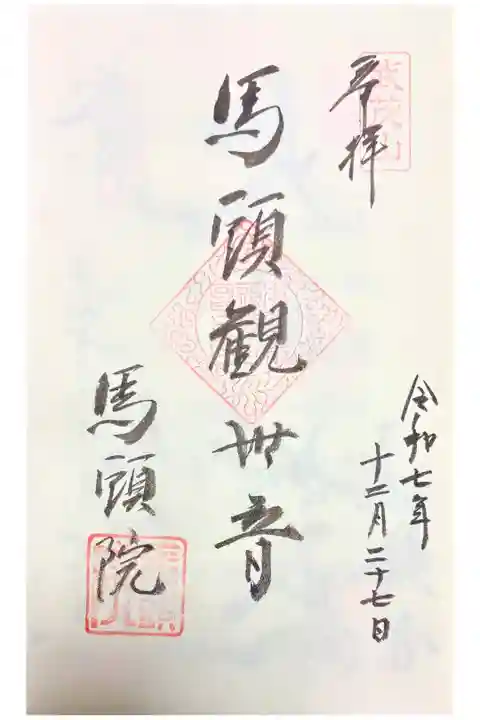 奉拝
武茂山
令和七年
十二月二十七日
馬頭観世音
馬頭院